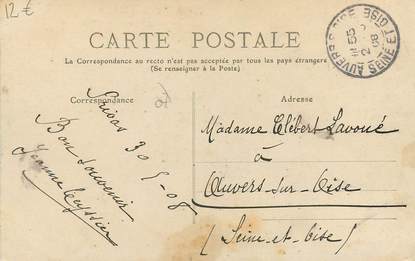 12 €
CARTE POSTALE
La Correspondance au recto n'est pas acceptée par tous les pays étrangers
(Se renseigner à la Poste)
Correspondance
Privas 30 5-08
Bon Souvenir
Jeanne Teyssier
Adresse
Madame Clébert Lavoué
à
Auvers-sur-Oise
(Seine-et-Oise)
AUVERS S OISE
SEINE ET OISE